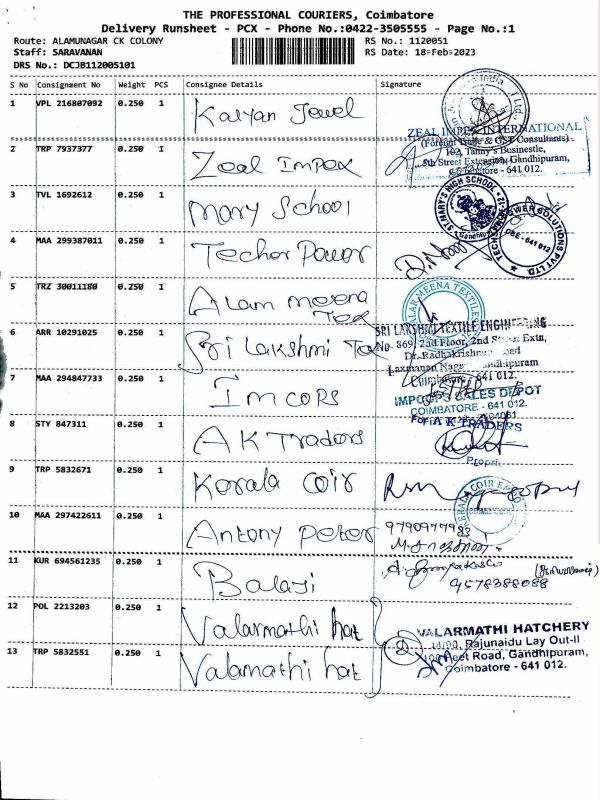 THE PROFESSIONAL COURIERS, Coimbatore
Delivery Runsheet - PCX - Phone No.:0422-3505555 - Page No.:1
Route: ALAMUNAGAR CK COLONY
RS No.: 1120051
Staff: SARAVANAN
RS Date: 18-Feb-2023
DRS No.: DCJB112005101
S No Consignment No Weight PCS Consignee Details Signature
1 VPL 216807092 0.250 1 Kalyan Jewel
ZEAL IMPEX INTERNATIONAL
(Foreign Trade & GST Consultants)
2 TRP 7937377 0.250 1 Zeal Impex
8th Street Extension, Gandhipuram,
Coimbatore - 641 012.
3 TVL 1692612 0.250 1 Mary School
ST.MARY'S HIGH SCHOOL
4 MAA 299387011 0.250 1 Techer Power
CBE - 641 012
5 TRZ 30011180 0.250 1 Alam meena Tex
6 ARR 10291025 0.250 1 Sri Lakshmi Tex
SRI LAKSHMI TEXTILE ENGINEERING
No. 869, 2nd Floor, 2nd Street Extn,
Coimbatore - 641 012.
7 MAA 294847733 0.250 1 Imcops
IMPCOPS SALES DEPOT
COIMBATORE - 641 012.
8 STY 847311 0.250 1 AK Traders
For A K TRADERS
9 TRP 5832671 0.250 1 Kerala Coir
10 MAA 297422611 0.250 1 Antony Peter
11 KUR 694561235 0.250 1 Balaji
9578388088
12 POL 2213203 0.250 1 Valarmathi hat
VALARMATHI HATCHERY
Rajunaidu Lay Out-II
13 TRP 5832551 0.250 1 Valamathi hat
100 Feet Road, Gandhipuram,
Coimbatore - 641 012.